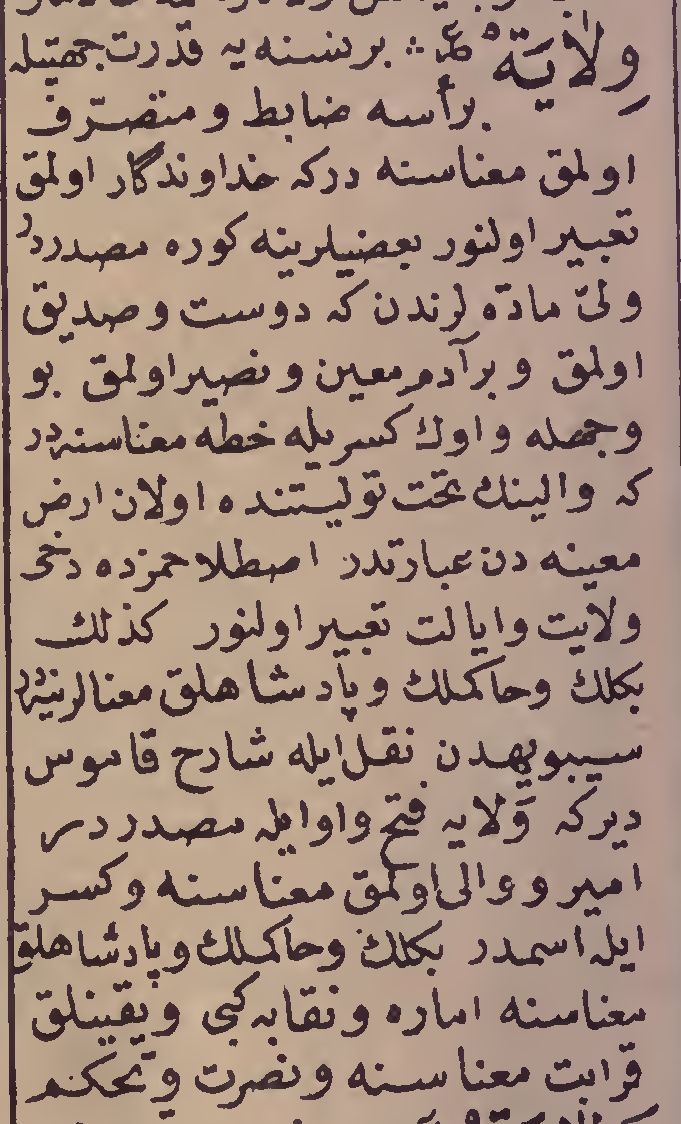 ولاية ع بر نسنه يه قدرت جهتيله
برأسه ضابط و متصرف
اولمق معناسنه در كه خداوندگار اولمق
تعبير اولنور بعضيلرينه كوره مصدردر
ولىّ مادّه لرندن كه دوست و صديق
اولمق و بر آدمه معين و نصير اولمق بو
وجهله واوك كسريله خطه معناسنه در
كه والينك تحت توليتنده اولان ارض
معينه دن عبارتدر اصطلاحمزده دخى
ولايت وايالت تعبير اولنور كذلك
بكلك وحاكملك و پادشاهلق معنالرينه در
سيبويهدن نقل ايله شارح قاموس
ديركه وَلايه فتح واوايله مصدردر
امير و والى اولمق معناسنه وكسر
ايله اسمدر بكلك وحاكملك و پادشاهلق
معناسنه اماره ونقابه كبى و يقينلق
قرابت معناسنه ونصرت و تحكم